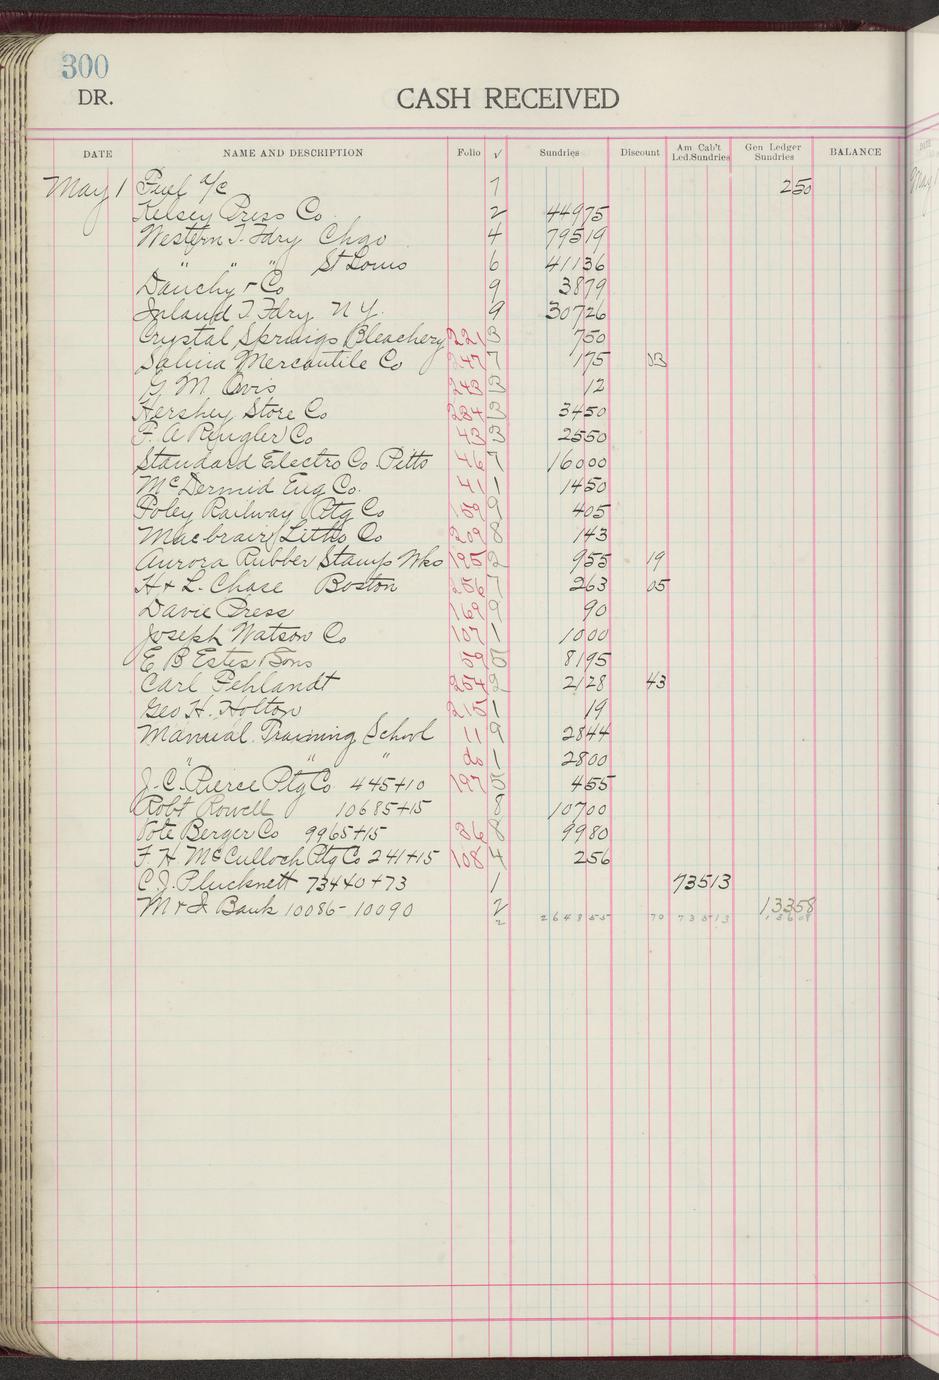 300
DR.
CASH RECEIVED
DATE NAME AND DESCRIPTION Folio √ Sundries Discount Am Cab't Led.Sundries Gen Ledger Sundries BALANCE
May 1 Fuel a/c 7 250
Kelsey Press Co 2 44975
Western T. Fdry Chgo 4 79519
" " " St Louis 6 41136
Dauchy + Co 9 3879
Inland T Fdry N Y. 9 30726
Crystal Springs Bleachery 221 3 750
Salina Mercantile Co 247 7 175 03
G M Ovis 243 3 12
Hershey Store Co 284 3 3450
F. A Ringler Co 43 3 2550
Standard Electro Co Pitts 46 7 16000
McDermid Eng Co. 41 1 1450
Poley Railway Ptg Co 109 9 405
Macbrair Litho Co 209 8 143
Aurora Rubber Stamp Wks 195 2 955 19
H + L. Chase Boston 256 7 263 05
Davie Press 169 9 90
Joseph Watson Co 107 1 1000
E B Estes Sons 59 5 8195
Carl Pehlandt 254 2 2128 43
Geo H. Holton 215 1 19
Manual Training School 11 9 2844
" " " do 1 2800
J. C. Pierce Ptg Co 445+10 197 5 455
Robt Rowell 10685+15 8 10700
Vote Berger Co 9965+15 36 8 9980
F. H McCulloch Ptg Co 241+15 108 4 256
C. J. Plucknett 73440+73 1 73513
M + I Bank 10086-10090 2 13358
2 264855 70 73513 13608